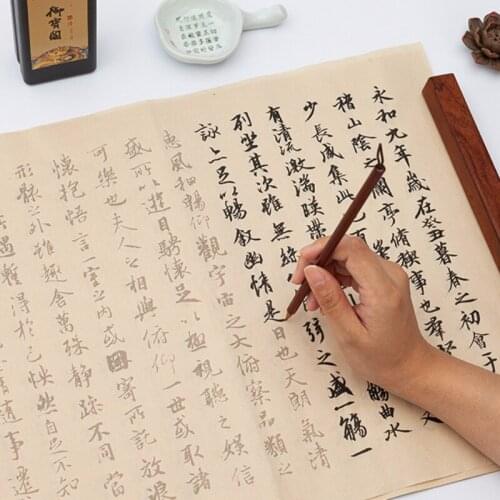 永和九年歲在癸丑暮春之初會于
稽山陰之蘭亭脩稧事也羣
少長咸集此
有清流激湍暎帶 觴曲水
列坐其次雖無絲 弦之盛一觴一
詠亦足以暢敘幽情是日也天朗氣清
惠風和暢仰觀宇宙之大俯察品類之
盛所以遊目騁懷足以極視聽之娛信
可樂也夫人之相與俯仰一世或取諸
懷抱悟言一室之內或因寄所託放浪
形骸之外雖趣舍萬殊靜躁不同當
遇暫得於己快然自足不
隨事遷